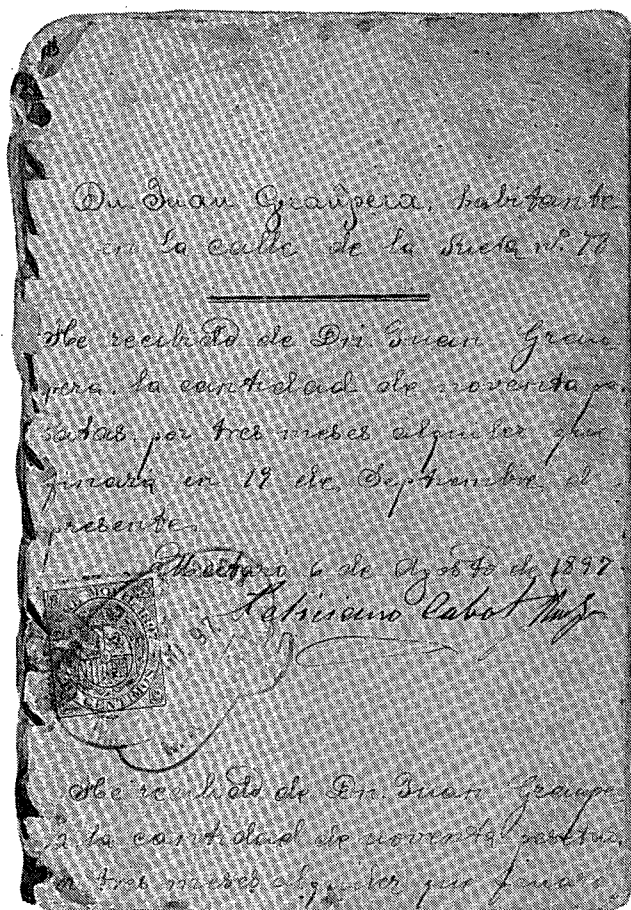 Dn. Juan Graupera, habitante
en la calle de la Riera nº. 78
He recibido de Dn Juan Grau-
pera, la cantidad de noventa pe-
setas por tres meses alquiler que
finará en 19 de Septiembre del
presente.
Mataró 6 de Agosto de 1897
Feliciano Cabot
CENTIMOS
He recibido de Dn. Juan Graupe-
ra la cantidad de noventa pesetas,
por tres meses alquiler que finará